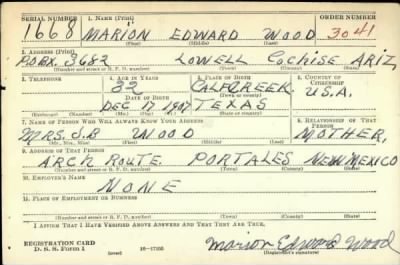 SERIAL NUMBER 1. NAME (Print) ORDER NUMBER
1668 MARION EDWARD WOOD 3041
(First) (Middle) (Last)
2. ADDRESS (Print)
P.O.BX. 3682 LOWELL Cochise ARIZ
(Number and street or R. F. D. number) (Town) (County) (State)
3. TELEPHONE 4. AGE IN YEARS 5. PLACE OF BIRTH 6. COUNTRY OF CITIZENSHIP
32 CALFCREEK U.S.A.
DATE OF BIRTH (Town or county)
DEC 17 1907 TEXAS
(Exchange) (Number) (Mo.) (Day) (Yr.) (State or country)
7. NAME OF PERSON WHO WILL ALWAYS KNOW YOUR ADDRESS 8. RELATIONSHIP OF THAT PERSON
MRS. J.B WOOD MOTHER,
(Mr., Mrs., Miss) (First) (Middle) (Last)
9. ADDRESS OF THAT PERSON
ARCH ROUTE. PORTALES NEW MEXICO
(Number and street or R. F. D. number) (Town) (County) (State)
10. EMPLOYER'S NAME
NONE
11. PLACE OF EMPLOYMENT OR BUSINESS
(Number and street or R. F. D. number) (Town) (County) (State)
I AFFIRM THAT I HAVE VERIFIED ABOVE ANSWERS AND THAT THEY ARE TRUE.
REGISTRATION CARD
D. S. S. Form 1 (over) 16—17105 Marion Edward Wood
(Registrant's signature)